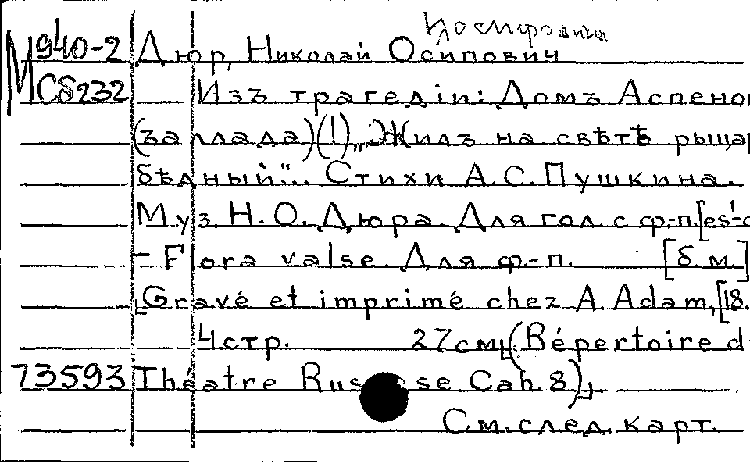 Иосифович
М 940-2 Дюр, Николай Осипович
Сб232 Изъ трагедіи: Домъ Аспено
(баллада)(!) „Жилъ на свѣтѣ рыцар
бѣдный". Стихи А.С. Пушкина.
Муз. Н.О. Дюра. Для гол. с ф-п. [es'-
– Flora valse. Для ф-п. [б.м.]
Gravé et imprimé chez A. Adam, [18.
4 стр. 27 см. (Répertoire d
73593 Théatre Russe Cah. 8)
См. след. карт.